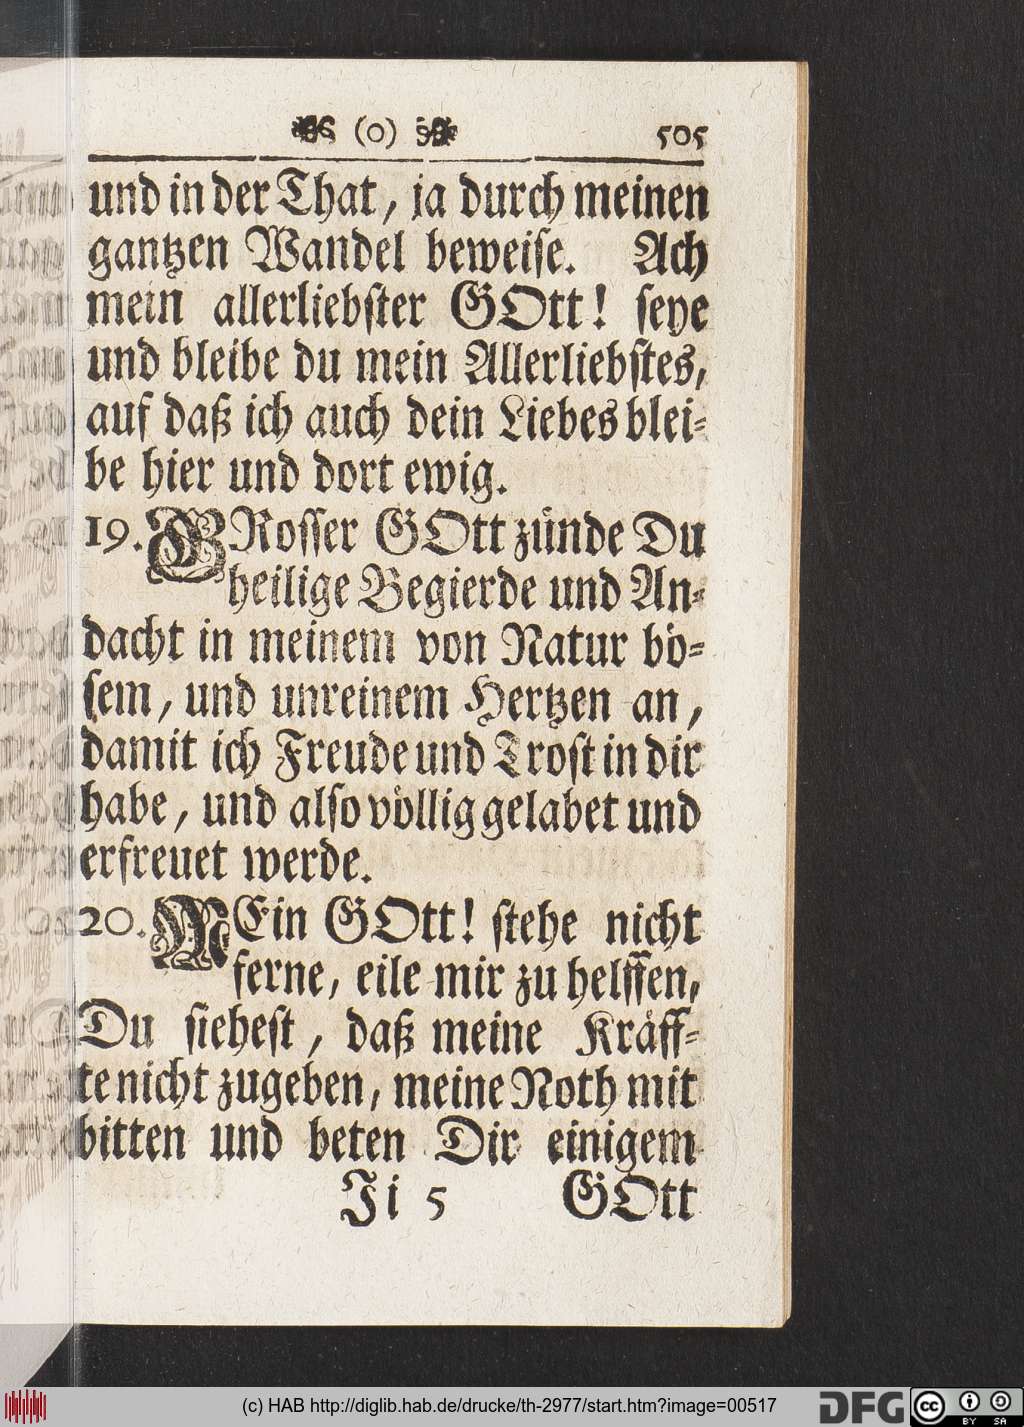 (o) 505
und in der That, ja durch meinen
gantzen Wandel beweise. Ach
mein allerliebster GOtt! seye
und bleibe du mein Allerliebstes,
auf daß ich auch dein Liebes blei-
be hier und dort ewig.
19. GRosser GOtt zünde Du
heilige Begierde und An-
dacht in meinem von Natur bö-
sem, und unreinem Hertzen an,
damit ich Freude und Trost in dir
habe, und also völlig gelabet und
erfreuet werde.
20. MEin GOtt! stehe nicht
ferne, eile mir zu helffen,
Du siehest, daß meine Kräff-
te nicht zugeben, meine Noth mit
bitten und beten Dir einigem
Ji 5 GOtt
(c) HAB http://diglib.hab.de/drucke/th-2977/start.htm?image=00517
DFG
cc BY SA